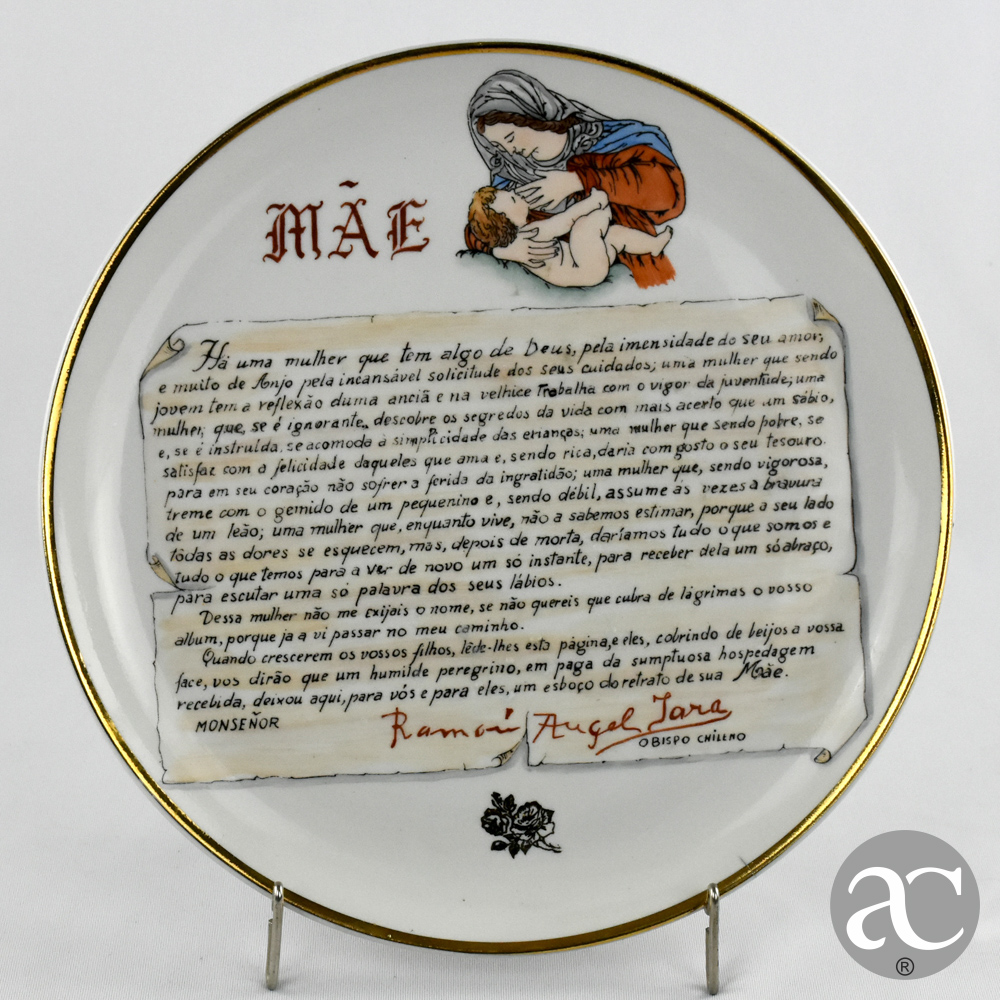 MÃE
Há uma mulher que tem algo de Deus, pela imensidade do seu amor,
e muito de Anjo pela incansável solicitude dos seus cuidados; uma mulher que sendo
jovem tem a reflexão duma anciã e na velhice Trabalha com o vigor da juventude; uma
mulher, que, se é ignorante, descobre os segredos da vida com mais acerto que um sábio,
e, se é instruída, se acomoda à simplicidade das crianças; uma mulher que sendo pobre, se
satisfaz com a felicidade daqueles que ama e, sendo rica, daria com gosto o seu tesouro.
para em seu coração não sofrer a ferida da ingratidão; uma mulher que, sendo vigorosa,
treme com o gemido de um pequenino e, sendo débil, assume às vezes a bravura
de um leão; uma mulher que, enquanto vive, não a sabemos estimar, porque a seu lado
tôdas as dores se esquecem, mas, depois de morta, daríamos tudo o que somos e
tudo o que temos para a ver de novo um só instante, para receber dela um só abraço,
para escutar uma só palavra dos seus lábios.
Dessa mulher não me exijais o nome, se não quereis que cubra de lágrimas o vosso
album, porque ja a vi passar no meu caminho.
Quando crescerem os vossos filhos, lêde-lhes esta página, e eles, cobrindo de beijos a vossa
face, vos dirão que um humilde peregrino, em paga da sumptuosa hospedagem
recebida, deixou aqui, para vós e para eles, um esboço do retrato de sua Mãe.
MONSEÑOR Ramón Angel Jara
OBISPO CHILENO
ac
®